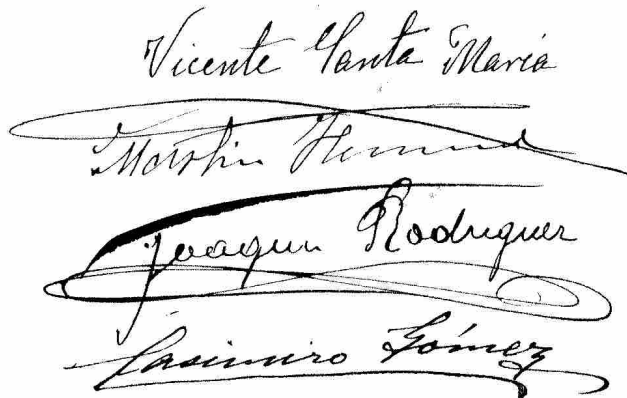 Vicente Santa Maria
Martin
Joaquin Rodriguez
Casimiro Gómez